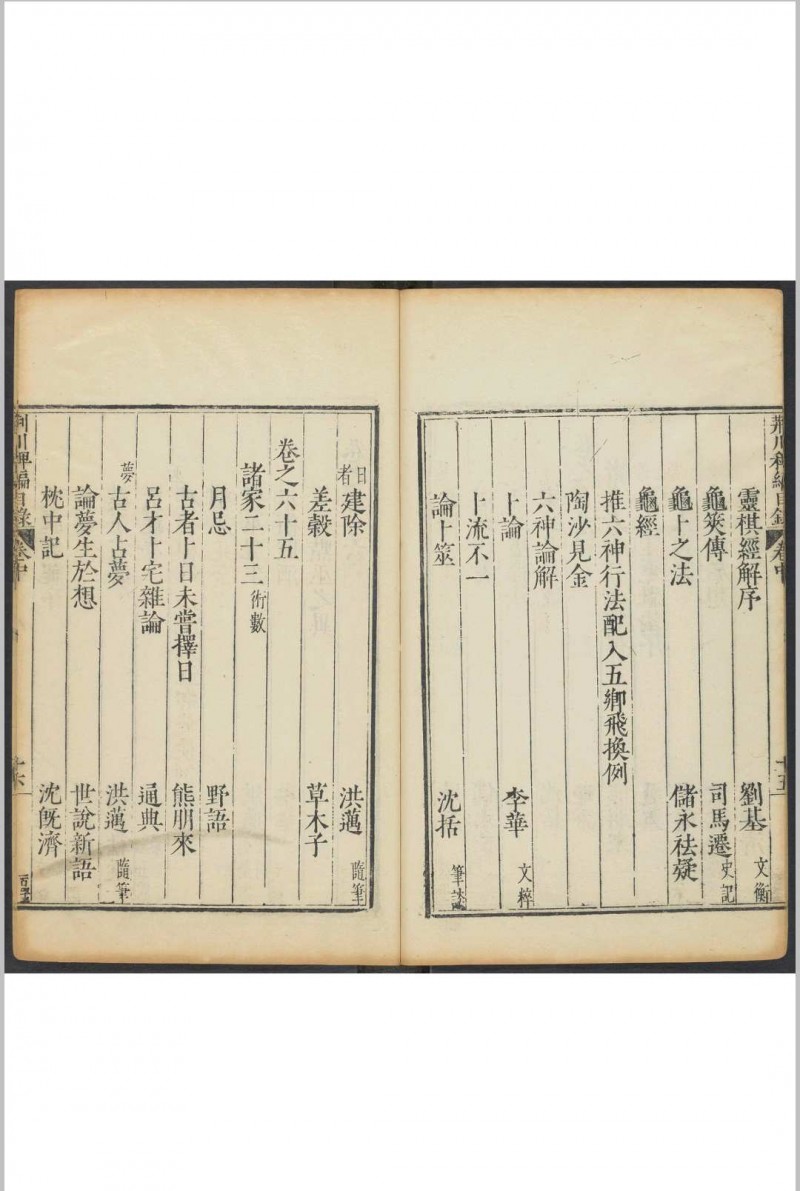 荆川稗編目錄 卷中
靈棋經解序 劉基 文衡
龜筴傳 司馬遷 史記
龜卜之法 儲永祛疑
龜經
推六神行法配入五鄉飛換例
陶沙見金
六神論解
卜論 李華 文粹
卜流不一
論卜筮 沈括 筆談
日者 建除 洪邁 隨筆
差穀 草木子
卷之六十五
諸家二十三 術數
月忌 野語
古者卜日未嘗擇日 熊朋來
呂才卜宅雜論 通典
夢 古人占夢 洪邁 隨筆
論夢生於想 世說新語
枕中記 沈旣濟
荆川稗編目錄 卷中 十六